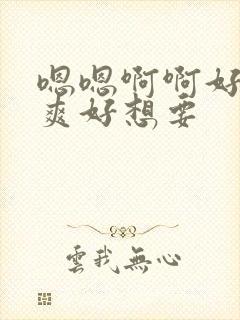 嗯嗯啊啊好
爽好想要
雲我無心